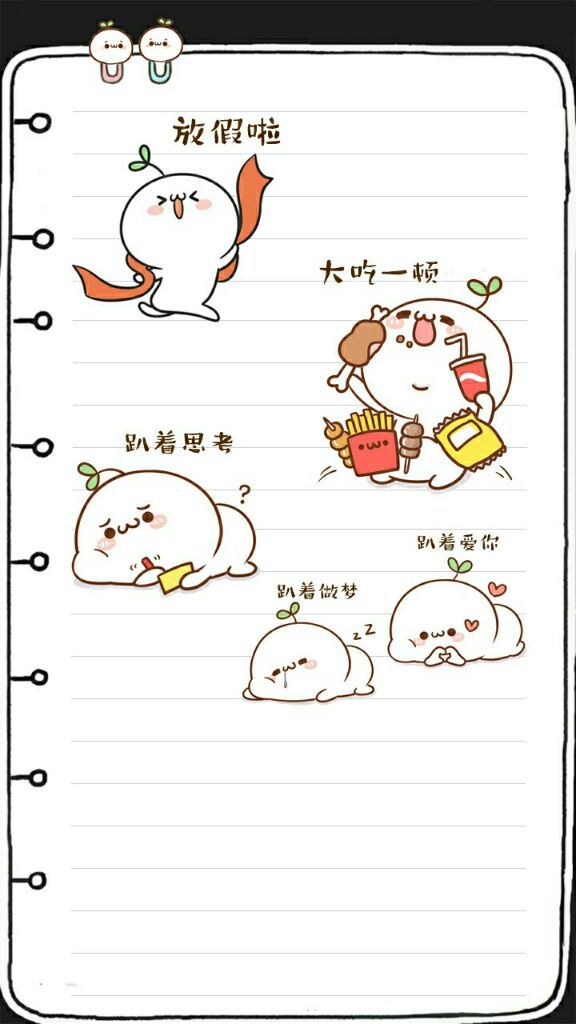 放假啦
大吃一顿
趴着思考
?
趴着爱你
趴着做梦
zZ